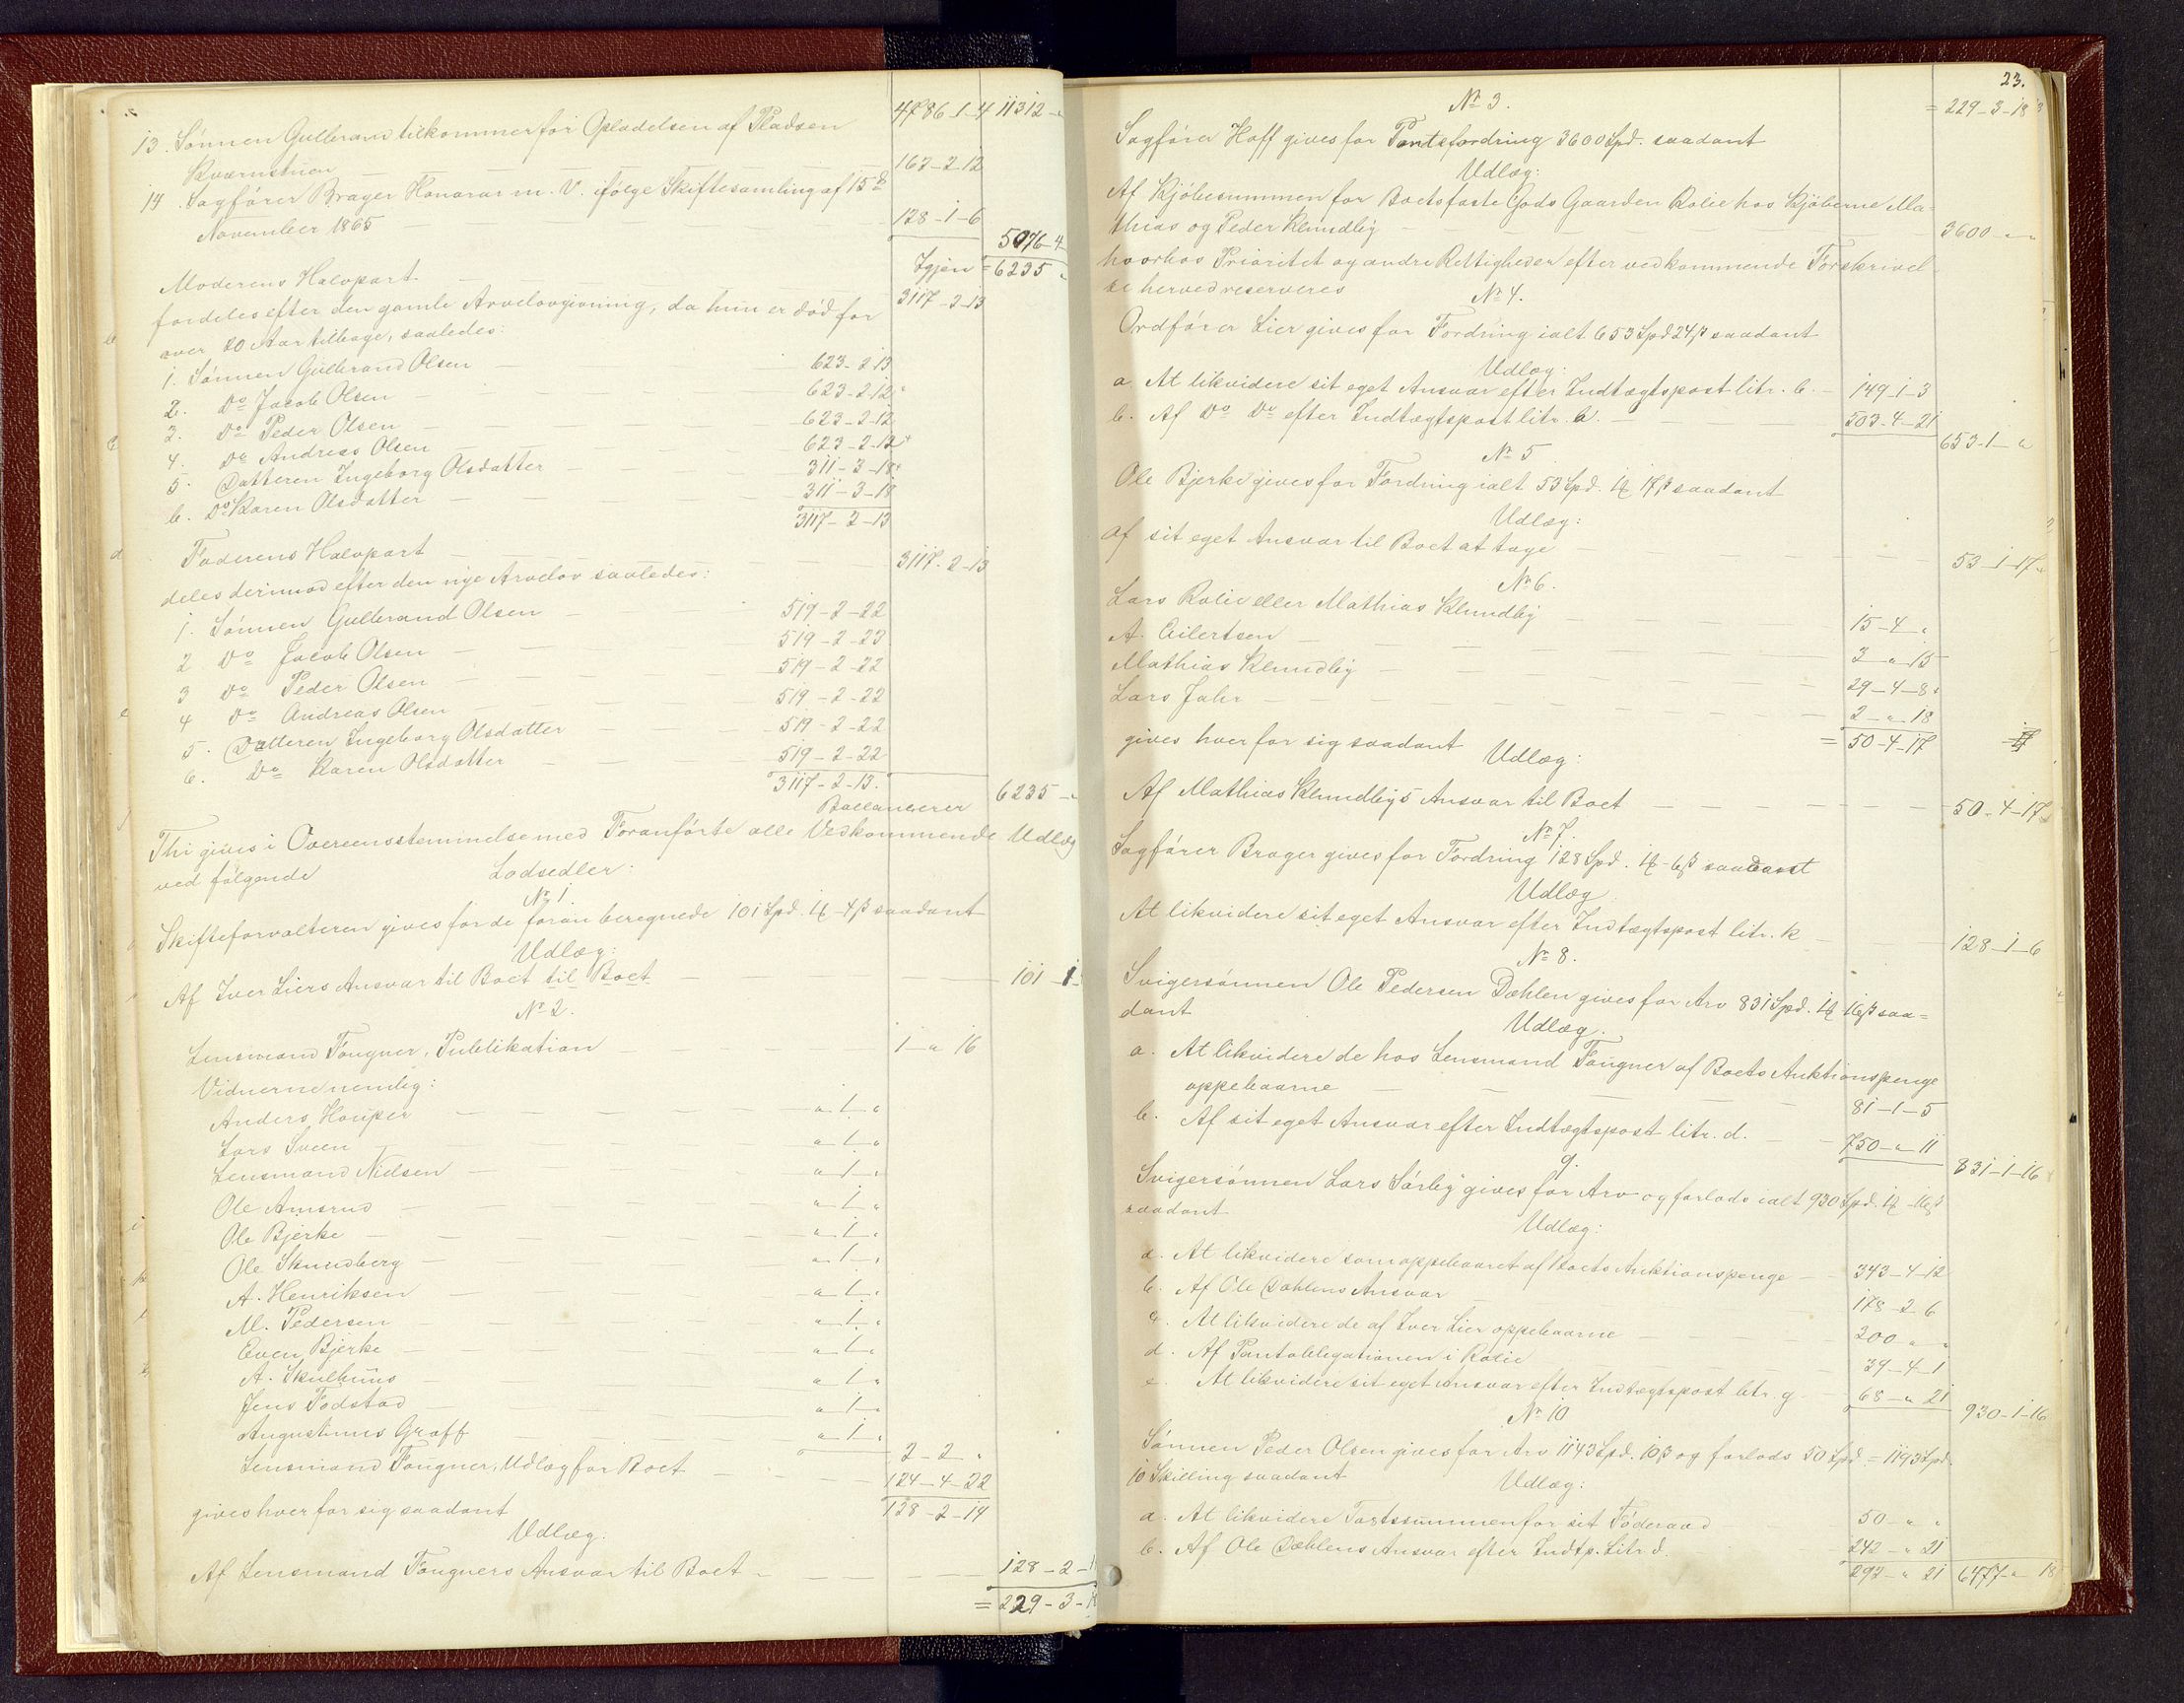 4786-1-4 11312-"
13. Sønnen Gulbrand tilkommer for Opladelsen af Pladsen
Kværnstuen — 163-2-12
14. Sagfører Brager Honorar m. V. ifølge Skiftesamling af 15d
November 1865 — 128-1-6
5076-4
Igjen = 6235 "
Moderens Halvpart — 3117-2-13
fordeles efter den gamle Arvelovgivning, da hun er død for
over 20 Aar tilbage, saaledes:
1. Sønnen Gulbrand Olsen — 623-2-13
2. Do Jacob Olsen — 623-2-12
3. Do Peder Olsen — 623-2-12
4. Do Andreas Olsen — 623-2-12
5. Datteren Ingeborg Olsdatter — 311-3-18
6. Do Karen Olsdatter — 311-3-18
3117-2-13
Faderens Halvpart — 3117-2-13
deles derimod efter den nye Arvelov saaledes:
1. Sønnen Gulbrand Olsen — 519-2-22
2 Do Jacob Olsen — 519-2-23
3 Do Peder Olsen — 519-2-22
4 Do Andreas Olsen — 519-2-22
5. Datteren Ingeborg Olsdatter — 519-2-22
6. Do Karen Olsdatter — 519-2-22
3117-2-13.
Ballancerer 6235-"
Thi gives i Overensstemmelse med Foranførte alle Vedkommende Udlæg
ved følgende Lodsedler:
No 1.
Skifteforvalteren gives for de foran beregnede 101 Spd. 1 # - 4 β saadant
Udlæg:
Af Iver Liers Ansvar til Boet til Boet — 101-1-
No 2.
Lensmand Fougner, Publikation — 1-"-16
Vidnerne nemlig:
Anders Houper — "-1-"
Lars Sveen — "-1-"
Lensmand Nielsen — "-1-"
Ole Amsrud — "-1-"
Ole Bjerke — "-1-"
Ole Skundberg — "-1-"
A. Henriksen — "-1-"
M. Pedersen — "-1-"
Even Bjerke — "-1-"
A. Skulhuus — "-1-"
Jens Fodstad — "-1-"
Augustinus Graff — "-1-"
2-2-"
Lensmand Fougner, Udlæg for Boet — 124-4-22
gives hver for sig saadant 128-2-14
Udlæg.
Af Lensmand Fougners Ansvar til Boet — 128-2-
= 229-3-
23.
No 3. = 229-3-18
Sagfører Hoff gives for Pantefordring 3600 Spd. saadant
Udlæg:
Af Kjøbesummen for Boets faste Gods Gaarden Rolie hos Kjøberne Ma-
thias og Peder Klundby — 3600-"-"
hvorhos Prioritet og andre Rettigheder efter vedkommende Forskrivel
se herved reserveres
No 4.
Ordfører Lier gives for Fordring ialt 653 Spd 24 β saadant
Udlæg:
a. At likvidere sit eget Ansvar efter Indtægtspost litr. b. — 149-1-3
b. Af Do Do efter Indtægtspost litr. a. — 503-4-21
653-1-"
No 5
Ole Bjerke gives for Fordring ialt 53 Spd. 1 # 17 β saadant
Udlæg:
af sit eget Ansvar til Boet at tage — 53-1-17
No 6.
Lars Rolie eller Mathias Klundby — 15-4-"
A. Eilertsen — 3-"-15
Mathias Klundby — 29-4-8
Lars Jahr — 2-"-18
gives hver for sig saadant = 50-4-17
Udlæg:
Af Mathias Klundbys Ansvar til Boet — 50-4-17
No 7.
Sagfører Brager gives for Fordring 128 Spd. 1 # - 6 β saadant
Udlæg
At likvidere sit eget Ansvar efter Indtægtspost litr. k — 128-1-6
No 8.
Svigersønnen Ole Pedersen Dæhlen gives for Arv 831 Spd. 1 # 16 β saa=
dant
Udlæg.
a. At likvidere de hos Lensmand Fougner af Boets Auktionspenge
oppebaarne — 81-1-5
b. Af sit eget Ansvar efter Indtægtspost litr. d. — 750-"-11
831-1-16
9.
Svigersønnen Lars Sørby gives for Arv og forlods ialt 930 Spd. 1 # - 16 β
saadant
Udlæg:
a. At likvidere som oppebaaret af Boets Auktionspenge — 343-4-12
b. Af Ole Dæhlens Ansvar — 178-2-6
c. At likvidere de af Iver Lier oppebaarne — 300 " "
d. Af Pantobligationen i Rolie — 39-4-1
e. At likvidere sit eget Ansvar efter Indtægtspost litr. g — 68-"-21
930-1-16
No 10
Sønnen Peder Olsen gives for Arv 1143 Spd. 10 β og forlods 50 Spd = 1193 Spd.
10 Skilling saadant
Udlæg:
a. At likvidere Taxtsummen for sit Føderaad — 50-"-"
b. Af Ole Dæhlens Ansvar efter Indtp. Litr d. — 242-"-21
292-"-21 6477-"-18